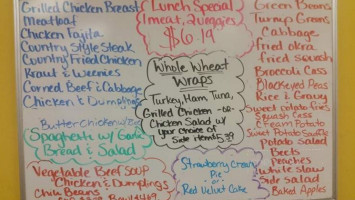 Grilled Chicken Breast
Meatloaf
Chicken Fajita
Country Style Steak
Country Fried Chicken
Kraut & Weenies
Corned Beef & Cabbage
Chicken & Dumplings
Butter Chicken
Spaghetti w/ Garlic
Bread & Salad
Vegetable Beef Soup
Chicken & Dumplings
Chili Beans
Lunch Special
1 meat, 2 veggies
$6.19
Whole Wheat
Wraps
Turkey, Ham, Tuna,
Grilled Chicken -or-
Chicken Salad w/
your choice of
Side item $5.39
Strawberry Cream
Pie
or
Red Velvet Cake
Green Beans
Turnip Greens
Cabbage
Fried Okra
Fried Squash
Broccoli Cass
Blackeyed Peas
Rice & Gravy
Sweet Potato Fries
Squash Cass
Cream Potato
Sweet Potato Souffle
Potato Salad
Beets
Peaches
White Slaw
Side Salad
Baked Apples